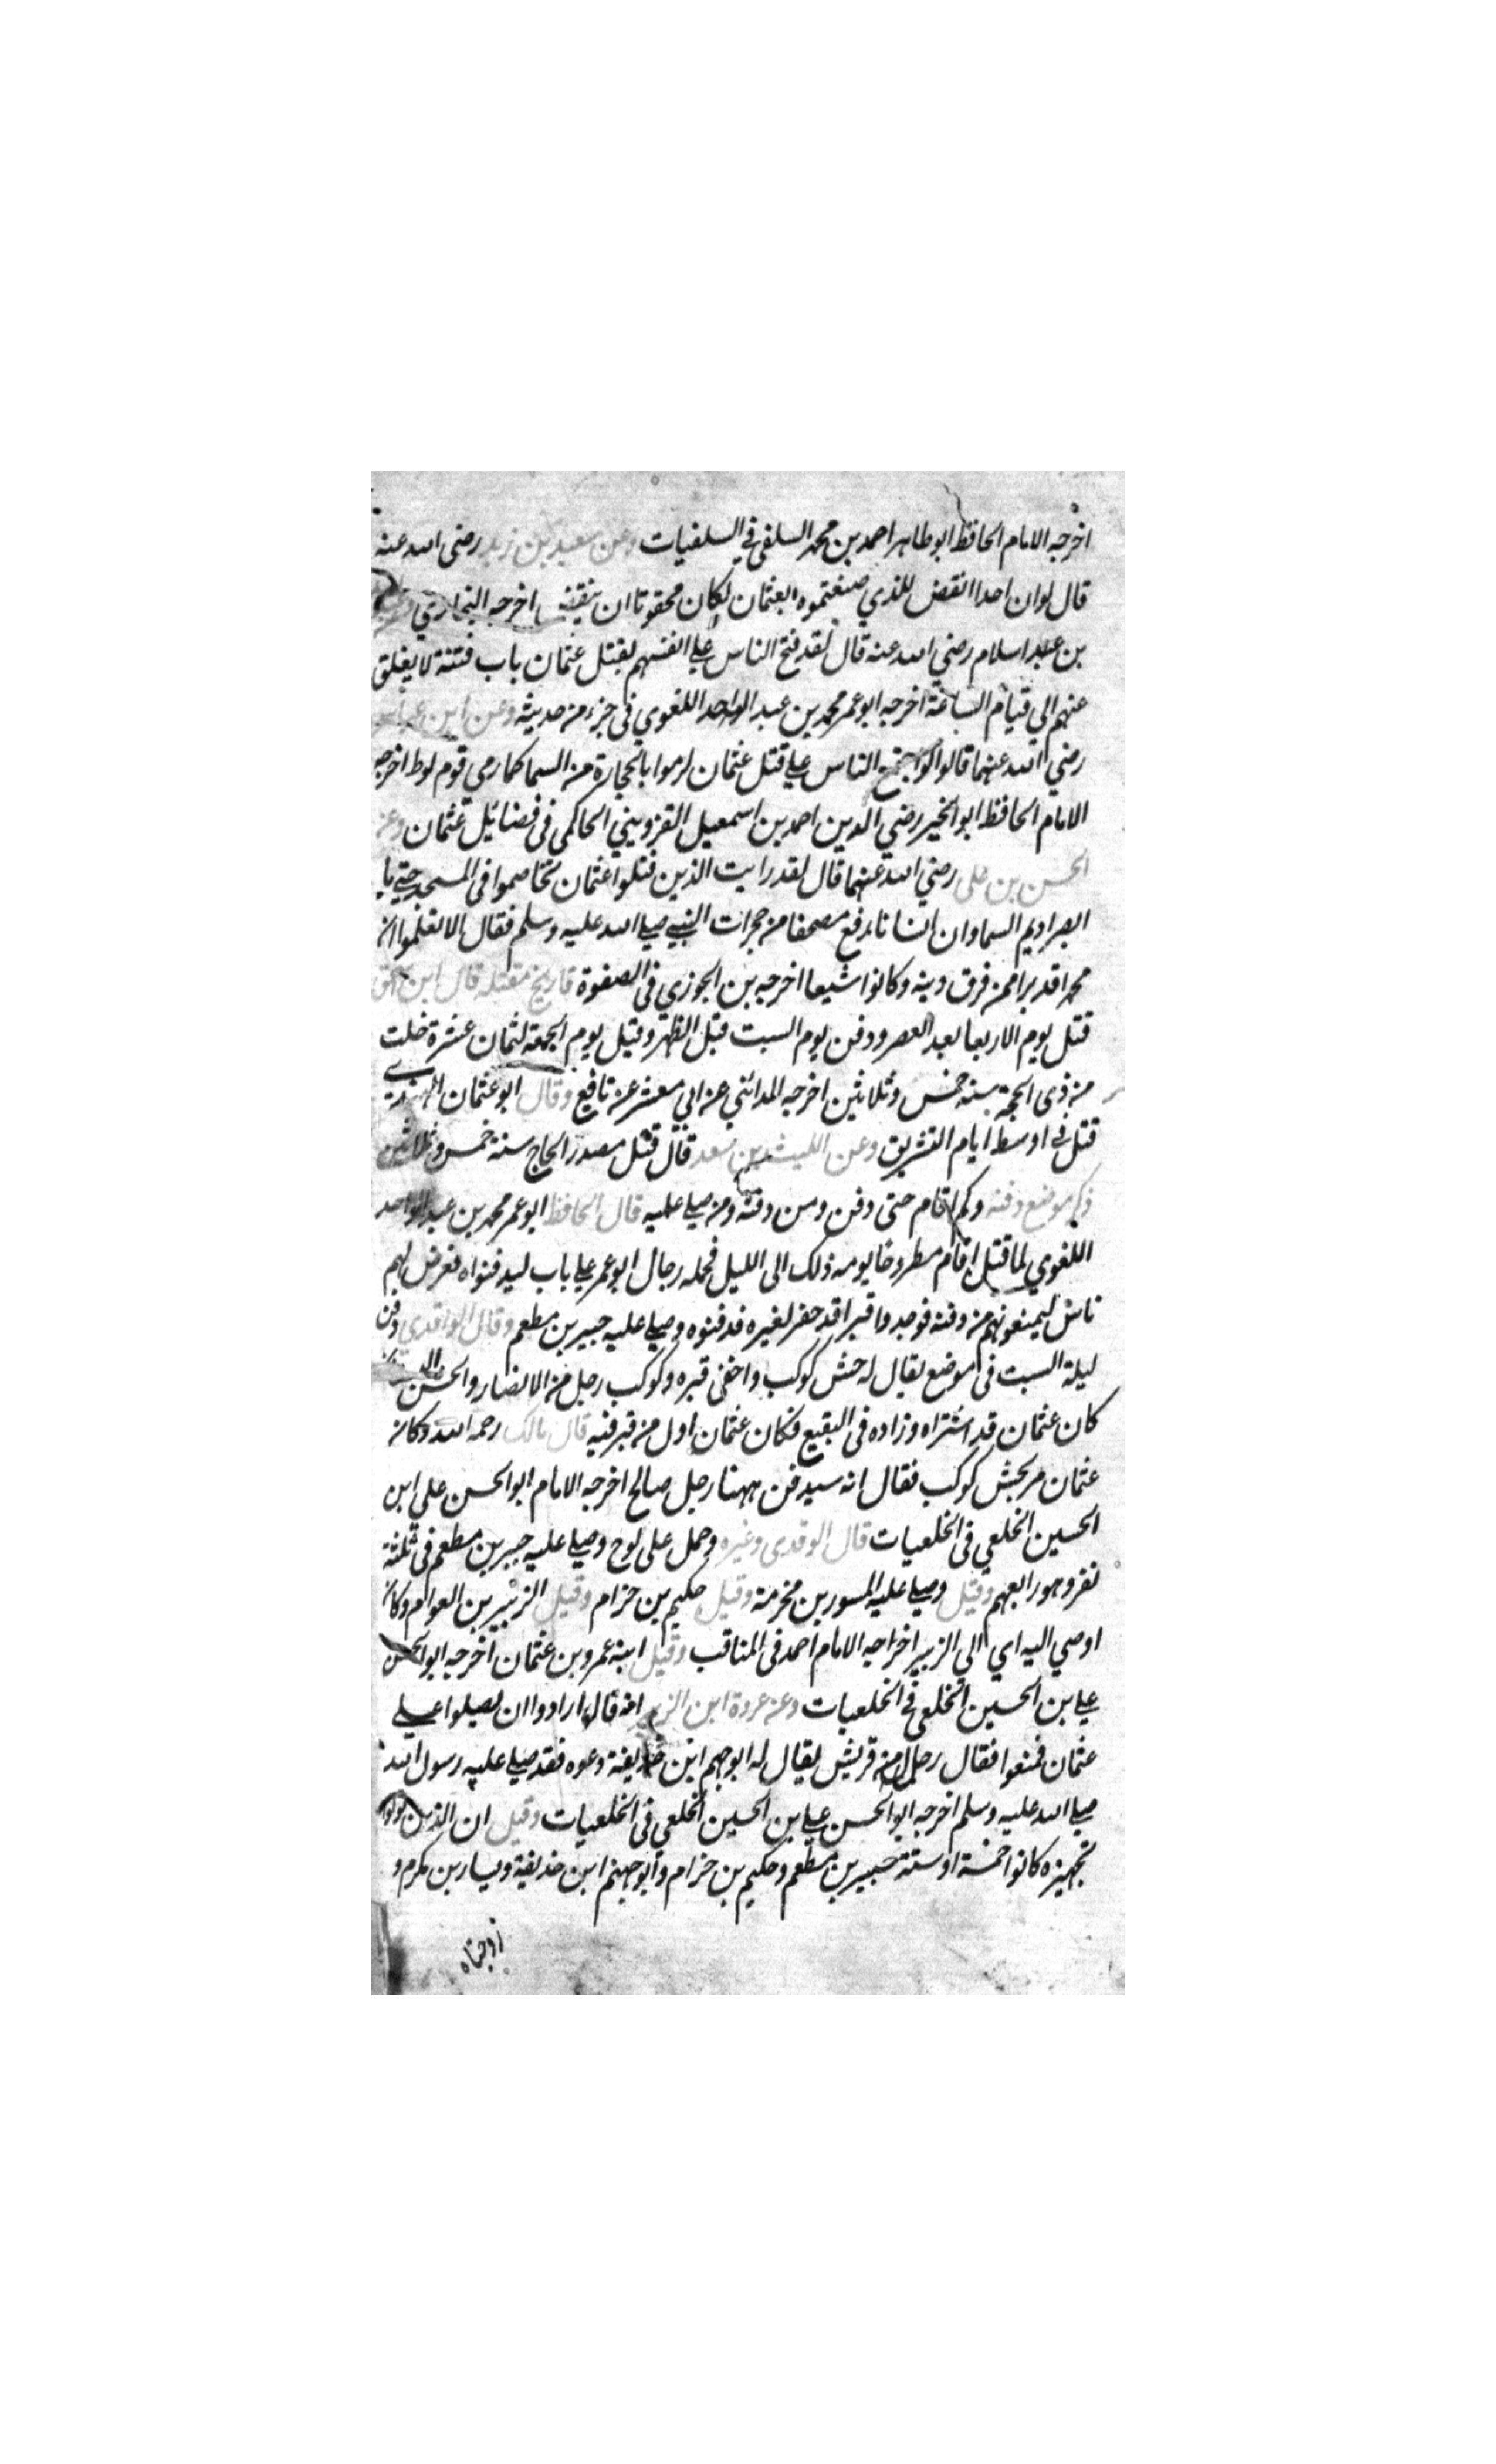 اخرجه الامام الحافظ ابو طاهر احمد بن محمد السلفي في السلفيات وعن سعيد بن زيد رضي الله عنه
قال لو ان احدا انقض للذي صنعتموه بعثمان لكان محقوقا ان ينقض اخرجه البخاري
بن عبد اسلام رضي الله عنه قال لقد فتح الناس علي انفسهم بقتل عثمان باب فتنة لا يغلق
عنهم الي قيام الساعة اخرجه ابو عمر محمد بن عبد الواحد اللغوي في جزء من حديثه وعن ابن عباس
رضي الله عنهما قالوا لو اجتمع الناس علي قتل عثمان لرموا بالحجارة من السما كما رمي قوم لوط اخرجه
الامام الحافظ ابو الخير رضي الدين احمد بن اسمعيل القزويني الحاكمي في فضائل عثمان وعن
الحسن بن علي رضي الله عنهما قال لقد رايت الذين قتلوا عثمان تخاصموا في المسجد حتي ما
ابصر اديم السما وان انسانا رفع مصحفا من حجرات النبي صلي الله عليه وسلم فقال الا تعلموا ان
محمدا قد برا ممن فرق دينه وكانوا شيعا اخرجه بن الجوزي في الصفوة تاريخ مقتله قال ابن
قتل يوم الاربعا بعد العصر ودفن يوم السبت قبل الظهر وقيل يوم الجمعة لثمان عشرة خلت
من ذي الحجة سنة خمس وثلاثين اخرجه المدائني عن ابي معشر عن نافع وقال ابو عثمان النهدي
قتل في اوسط ايام التشريق وعن الليث بن سعد قال قتل مصدر الحاج سنة خمس وثلاثين
ذكر موضع دفنه وكم اقام حتى دفن ومن دفنه ومن صلي عليه قال الحافظ ابو عمر محمد بن عبد الواحد
اللغوي لما قتل اقام مطروحا يومه ذلك الى الليل فحمله رجال ابو عمر علي باب ليدفنواه فعرض لهم
ناس ليمنعونهم من دفنه فوجدوا قبرا قد حفر لغيره فدفنوه وصلي عليه جبير بن مطعم وقال الواقدي دفن
ليلة السبت في موضع يقال له حش كوكب واخفى قبره وكوكب رجل من الانصار والحش
كان عثمان قد اشتراه وزاده في البقيع فكان عثمان اول من قبر فيه قال مالك رحمه الله وكان
عثمان مر بحش كوكب فقال انه سيدفن ههنا رجل صالح اخرجه الامام ابو الحسن علي ابن
الحسين الخلعي في الخلعيات قال الوقدي وغيره وحمل على لوح وصلي عليه جبير بن مطعم في ثلثة
نفر وهو رابعهم وقيل وصلي عليه المسور بن مخرمة وقيل حكيم بن حزام وقيل الزبير بن العوام وكان
اوصي اليه اي الي الزبير اخراجه الامام احمد في المناقب وقيل ابنه عمرو بن عثمان اخرجه ابو الحسن
علي بن الحسين الخلعي في الخلعيات وعن عروة ابن الزبير انه قال ارادوا ان يصلوا علي
عثمان فمنعوا فقال رجل من قريش يقال له ابو جهم ابن حذيفة دعوه فقد صلي عليه رسول الله
صلي الله عليه وسلم اخرجه ابو الحسن علي بن الحسين الخلعي في الخلعيات وقيل ان الذين تولوا
تجهيزه كانوا خمسة او ستة جبير بن مطعم وحكيم بن حزام وابو جهم ابن حذيفة ويسار بن مكرم و
زوجتاه